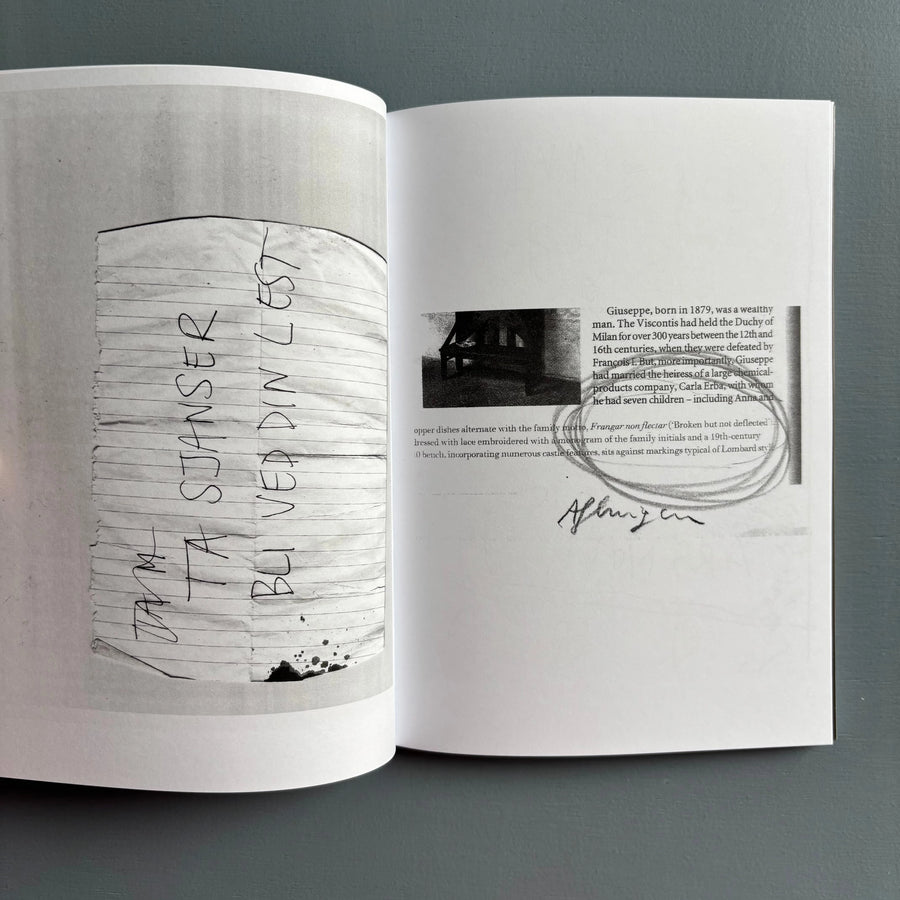 TA SJANSER
BLI VED DIN LEST
Giuseppe, born in 1879, was a wealthy
man. The Viscontis had held the Duchy of
Milan for over 300 years between the 12th and
16th centuries, when they were defeated by
François I. But, more importantly, Giuseppe
had married the heiress of a large chemical-
products company, Carla Erba, with whom
he had seven children – including Anna and
opper dishes alternate with the family motto, Frangar non flectar ('Broken but not deflected'
dressed with lace embroidered with a monogram of the family initials and a 19th-century
bench, incorporating numerous castle features, sits against markings typical of Lombard